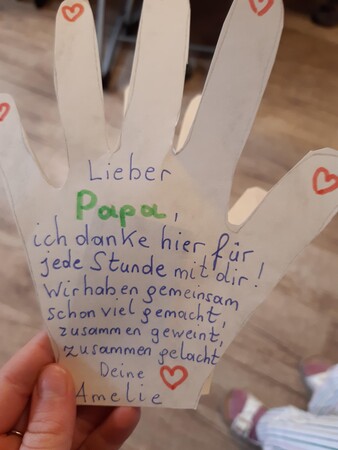 Lieber
Papa,
ich danke hier für
jede Stunde mit dir!
Wir haben gemeinsam
schon viel gemacht,
zusammen geweint,
zusammen gelacht
Deine
Amelie